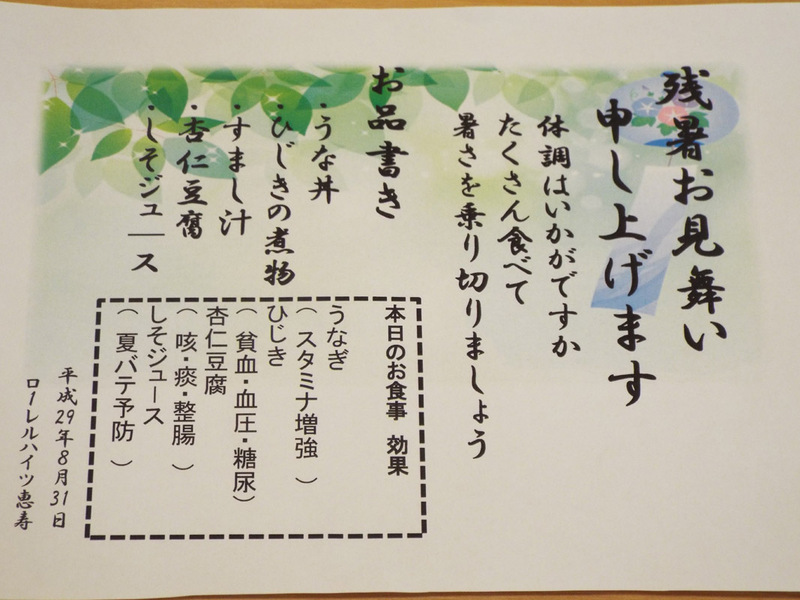 残暑お見舞い
申し上げます
体調はいかがですか
たくさん食べて
暑さを乗り切りましょう
お品書き
・うな丼
・ひじきの煮物
・すまし汁
・杏仁豆腐
・しそジュース
本日のお食事 効果
うなぎ
(スタミナ増強)
ひじき
(貧血・血圧・糖尿)
杏仁豆腐
(咳・痰・整腸)
しそジュース
(夏バテ予防)
平成29年8月31日
ローレルハイツ恵寿